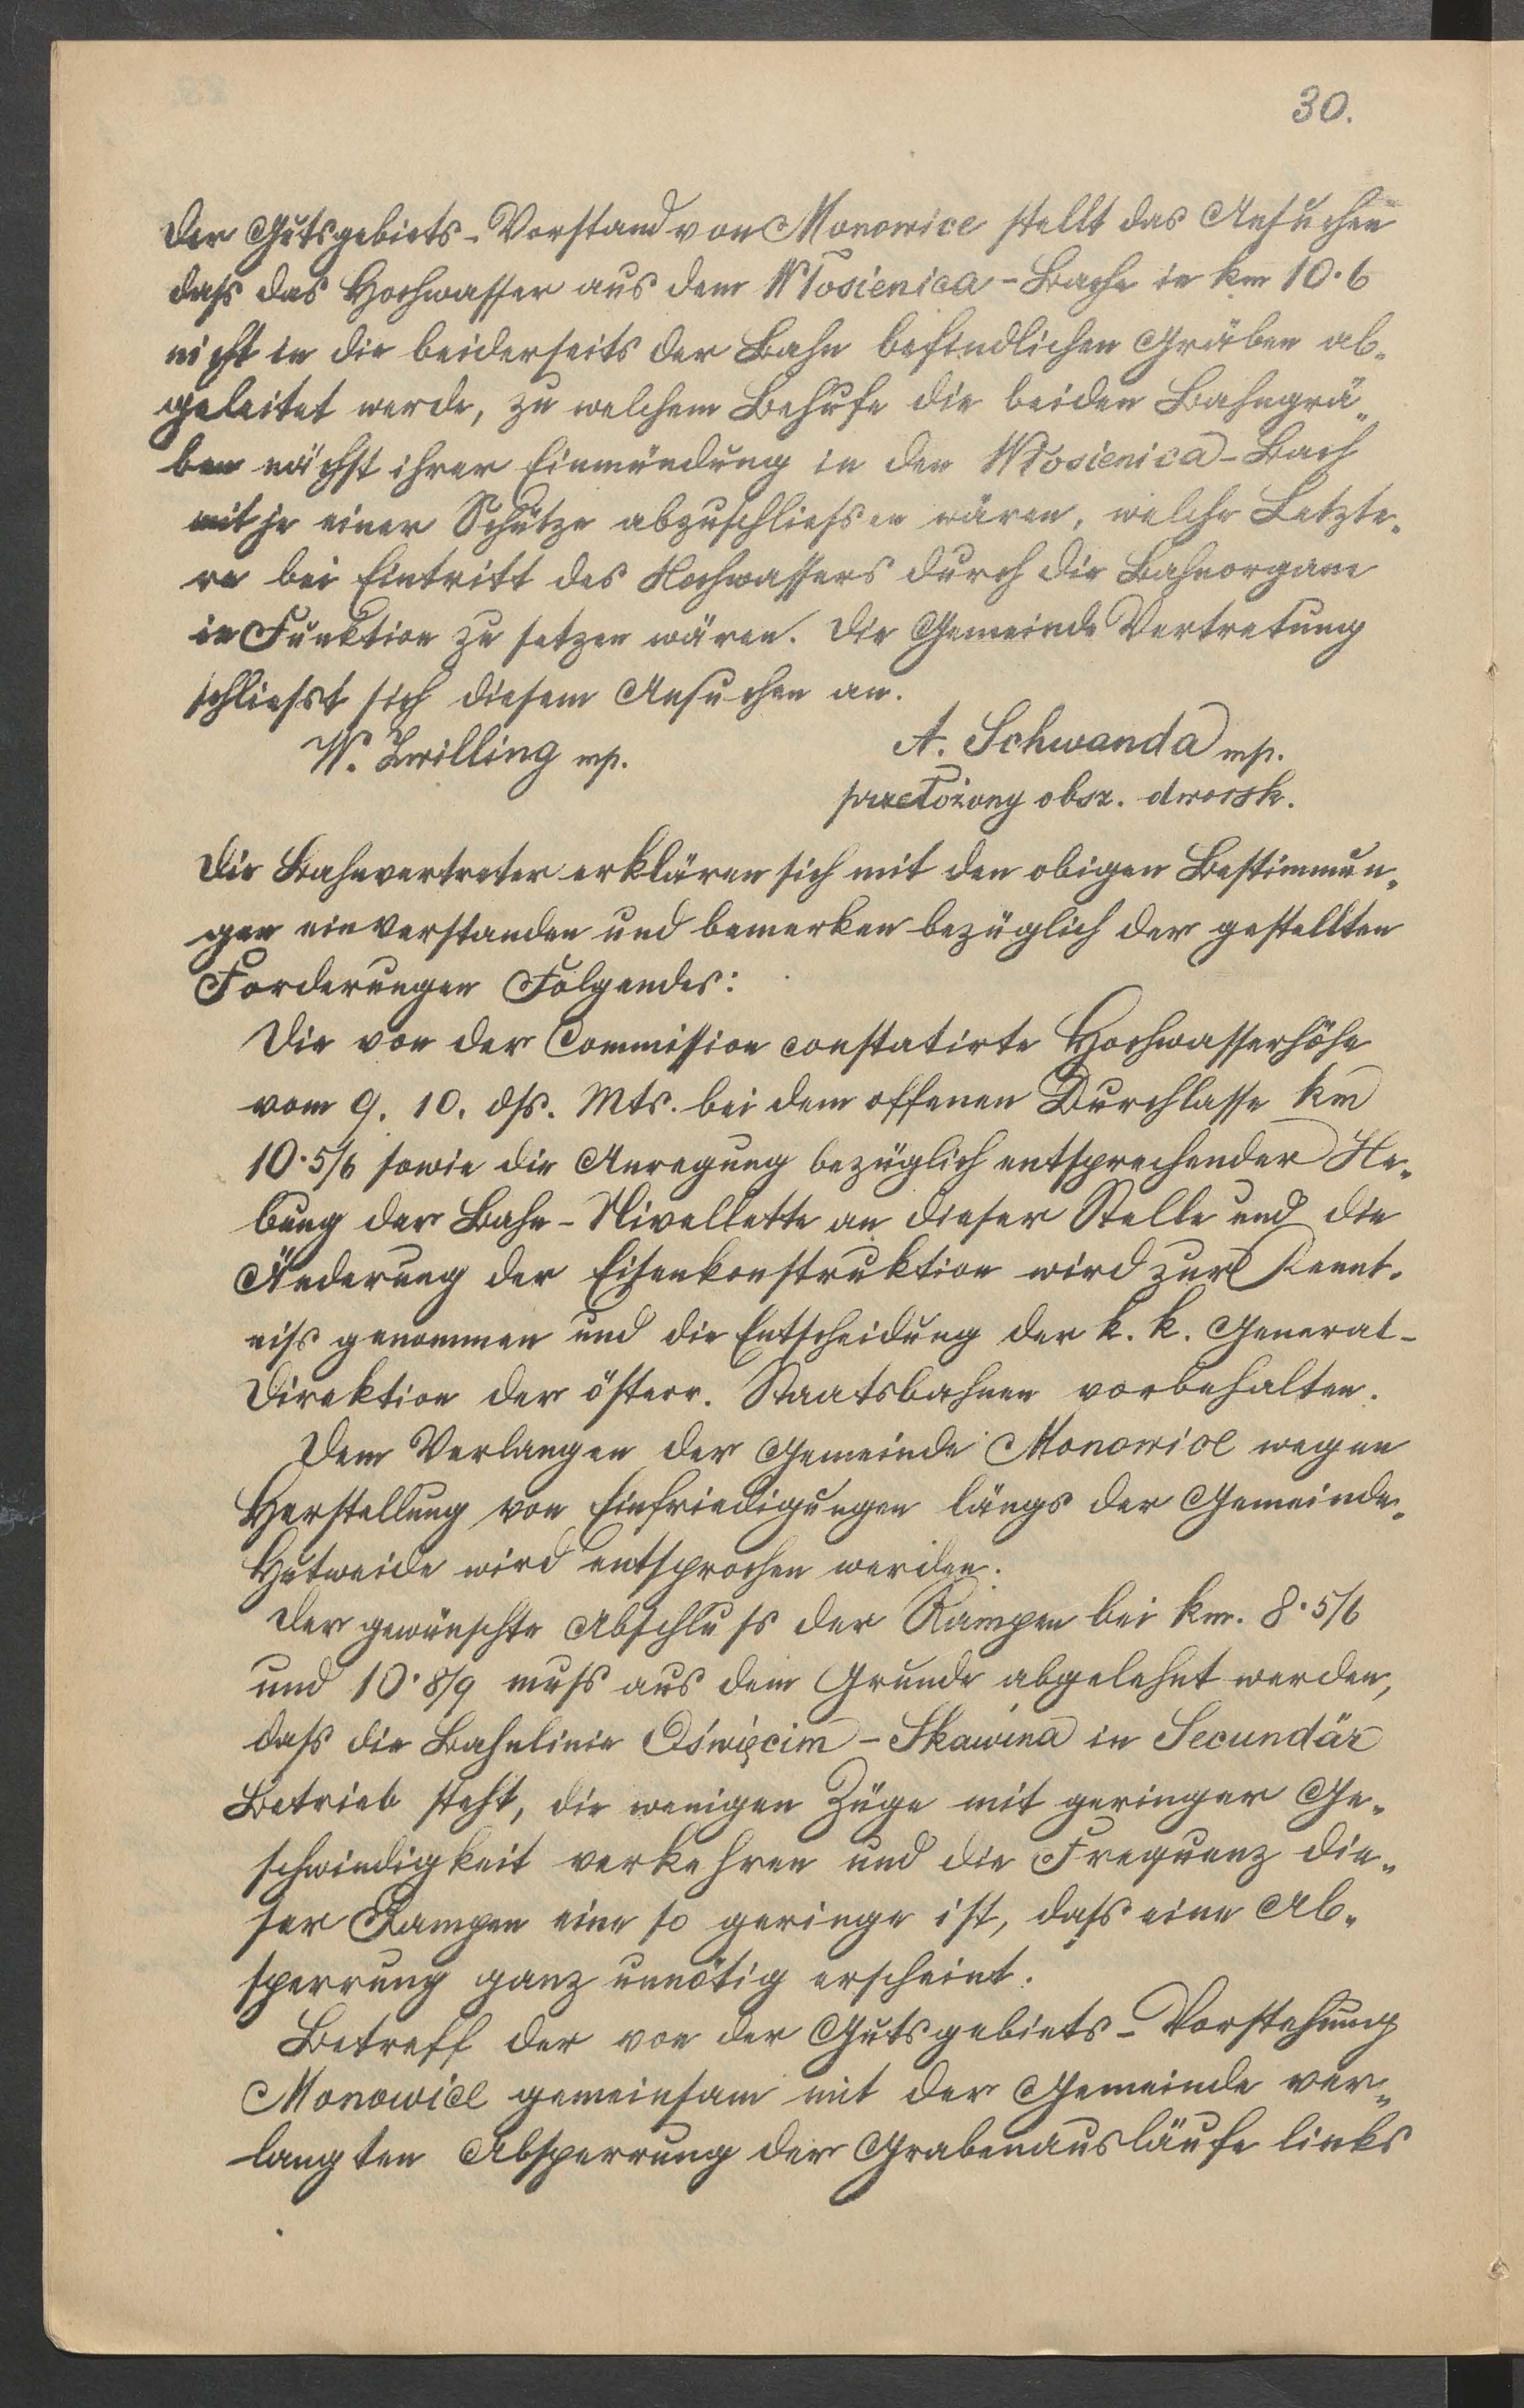 30.
Der Gutsgebiets-Vorstand von Monowice stellt das Ansuchen
daß das Hochwasser aus dem Włosienica-Bache in km 10·6
nicht in die beiderseits der Bahn befindlichen Gräben ab-
geleitet werde, zu welchem Behufe die beiden Bahngrä-
ben nächst ihrer Einmündung in den Włosienica-Bach
mit je einer Schütze abzuschließen wären, welche Letzte-
re bei Eintritt des Hochwassers durch die Bahnorgane
in Funktion zu setzen wären. Die Gemeinde Vertretung
schliesst sich diesem Ansuchen an.
W. Zwilling mp.
A. Schwanda mp.
przełożony obsz. dworsk.
Die Bahnvertreter erklären sich mit den obigen Bestimmun-
gen einverstanden und bemerken bezüglich der gestellten
Forderungen Folgendes:
Die von der Commission constatirte Hochwasserhöhe
vom 9. 10. ds. Mts. bei dem offenen Durchlasse km
10·5/6 sowie die Anregung bezüglich entsprechender He-
bung der Bahn-Nivellette an dieser Stelle und die
Änderung der Eisenkonstruktion wird zur Kennt-
niß genommen und die Entscheidung der k. k. General-
Direktion der österr. Staatsbahnen vorbehalten.
Dem Verlangen der Gemeinde Monowice wegen
Herstellung von Einfriedigungen längs der Gemeinde-
Hutweide wird entsprochen werden.
Der gewünschte Abschluß der Rampen bei km. 8·5/6
und 10·8/9 muß aus dem Grunde abgelehnt werden,
daß die Bahnlinie Oświęcim-Skawina in Secundär
Betrieb steht, die wenigen Züge mit geringer Ge-
schwindigkeit verkehren und die Frequenz die-
ser Rampen eine so geringe ist, daß eine Ab-
sperrung ganz unnötig erscheint.
Betreff der von der Gutsgebiets-Vorstehung
Monowice gemeinsam mit der Gemeinde ver-
langten Absperrung der Grabenausläufe links